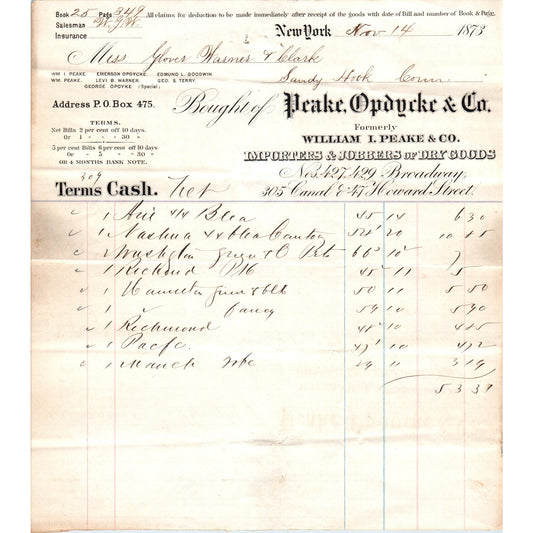 Book 25 Page 349 All claims for deduction to be made immediately after receipt of the goods with date of Bill and number of Book & Page.
Salesman
Insurance
New York Nov 14 1873
Mess Glover Warner & Clark
Sandy Hook Conn
WM I. PEAKE. EMERSON OPDYCKE. EDMUND L. GOODWIN.
WM. PEAKE. LEVI B. WARNER. GEO. S. TERRY.
GEORGE OPDYKE (Special)
Address P.O. Box 475.
Bought of Peake, Opdycke & Co.
Formerly
WILLIAM I. PEAKE & CO.
IMPORTERS & JOBBERS OF DRY GOODS
Nos. 427, 429 Broadway,
305 Canal & 47 Howard Street.
TERMS.
Net Bills 2 per cent off 10 days.
Or 1 " " 30 "
5 per cent Bills 6 per cent off 10 days
Or 5 " " 30 "
OR 4 MONTHS BANK NOTE.
309
Terms Cash. Net
1 4/4 Blea 45 14 6 30
1 Nashua 10 45
2
1 Richmond 45 11 5
1 Hamilton 50 11 5 50
1 " fancy 59 10 5 90
1 Richmond
1 Pacfc 10
1 Manch 29 11 3 19
53 39